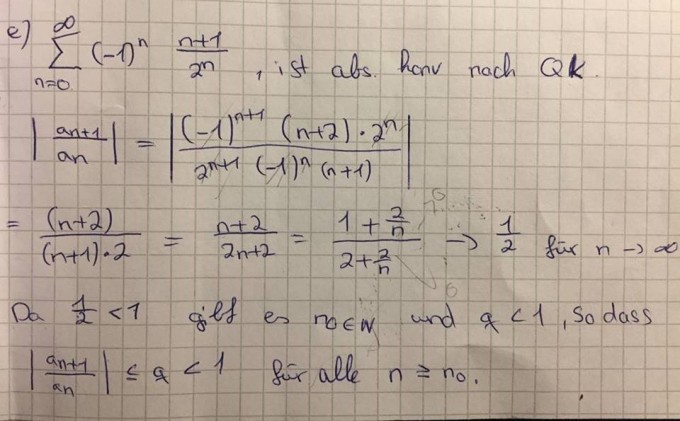 e) ∑_{n=0}^{∞} (-1)^n \frac{n+1}{2^n} , ist abs. konv nach QK.
|\frac{a_{n+1}}{a_n}| = |\frac{(-1)^{n+1} (n+2) · 2^n}{2^{n+1} (-1)^n (n+1)}|
= \frac{(n+2)}{(n+1)·2} = \frac{n+2}{2n+2} = \frac{1+\frac{2}{n}}{2+\frac{2}{n}} → \frac{1}{2} für n → ∞
Da \frac{1}{2} < 1 gilt es n_0 ∈ ℕ und q < 1, so dass
|\frac{a_{n+1}}{a_n}| ≤ q < 1 für alle n ≥ n_0.